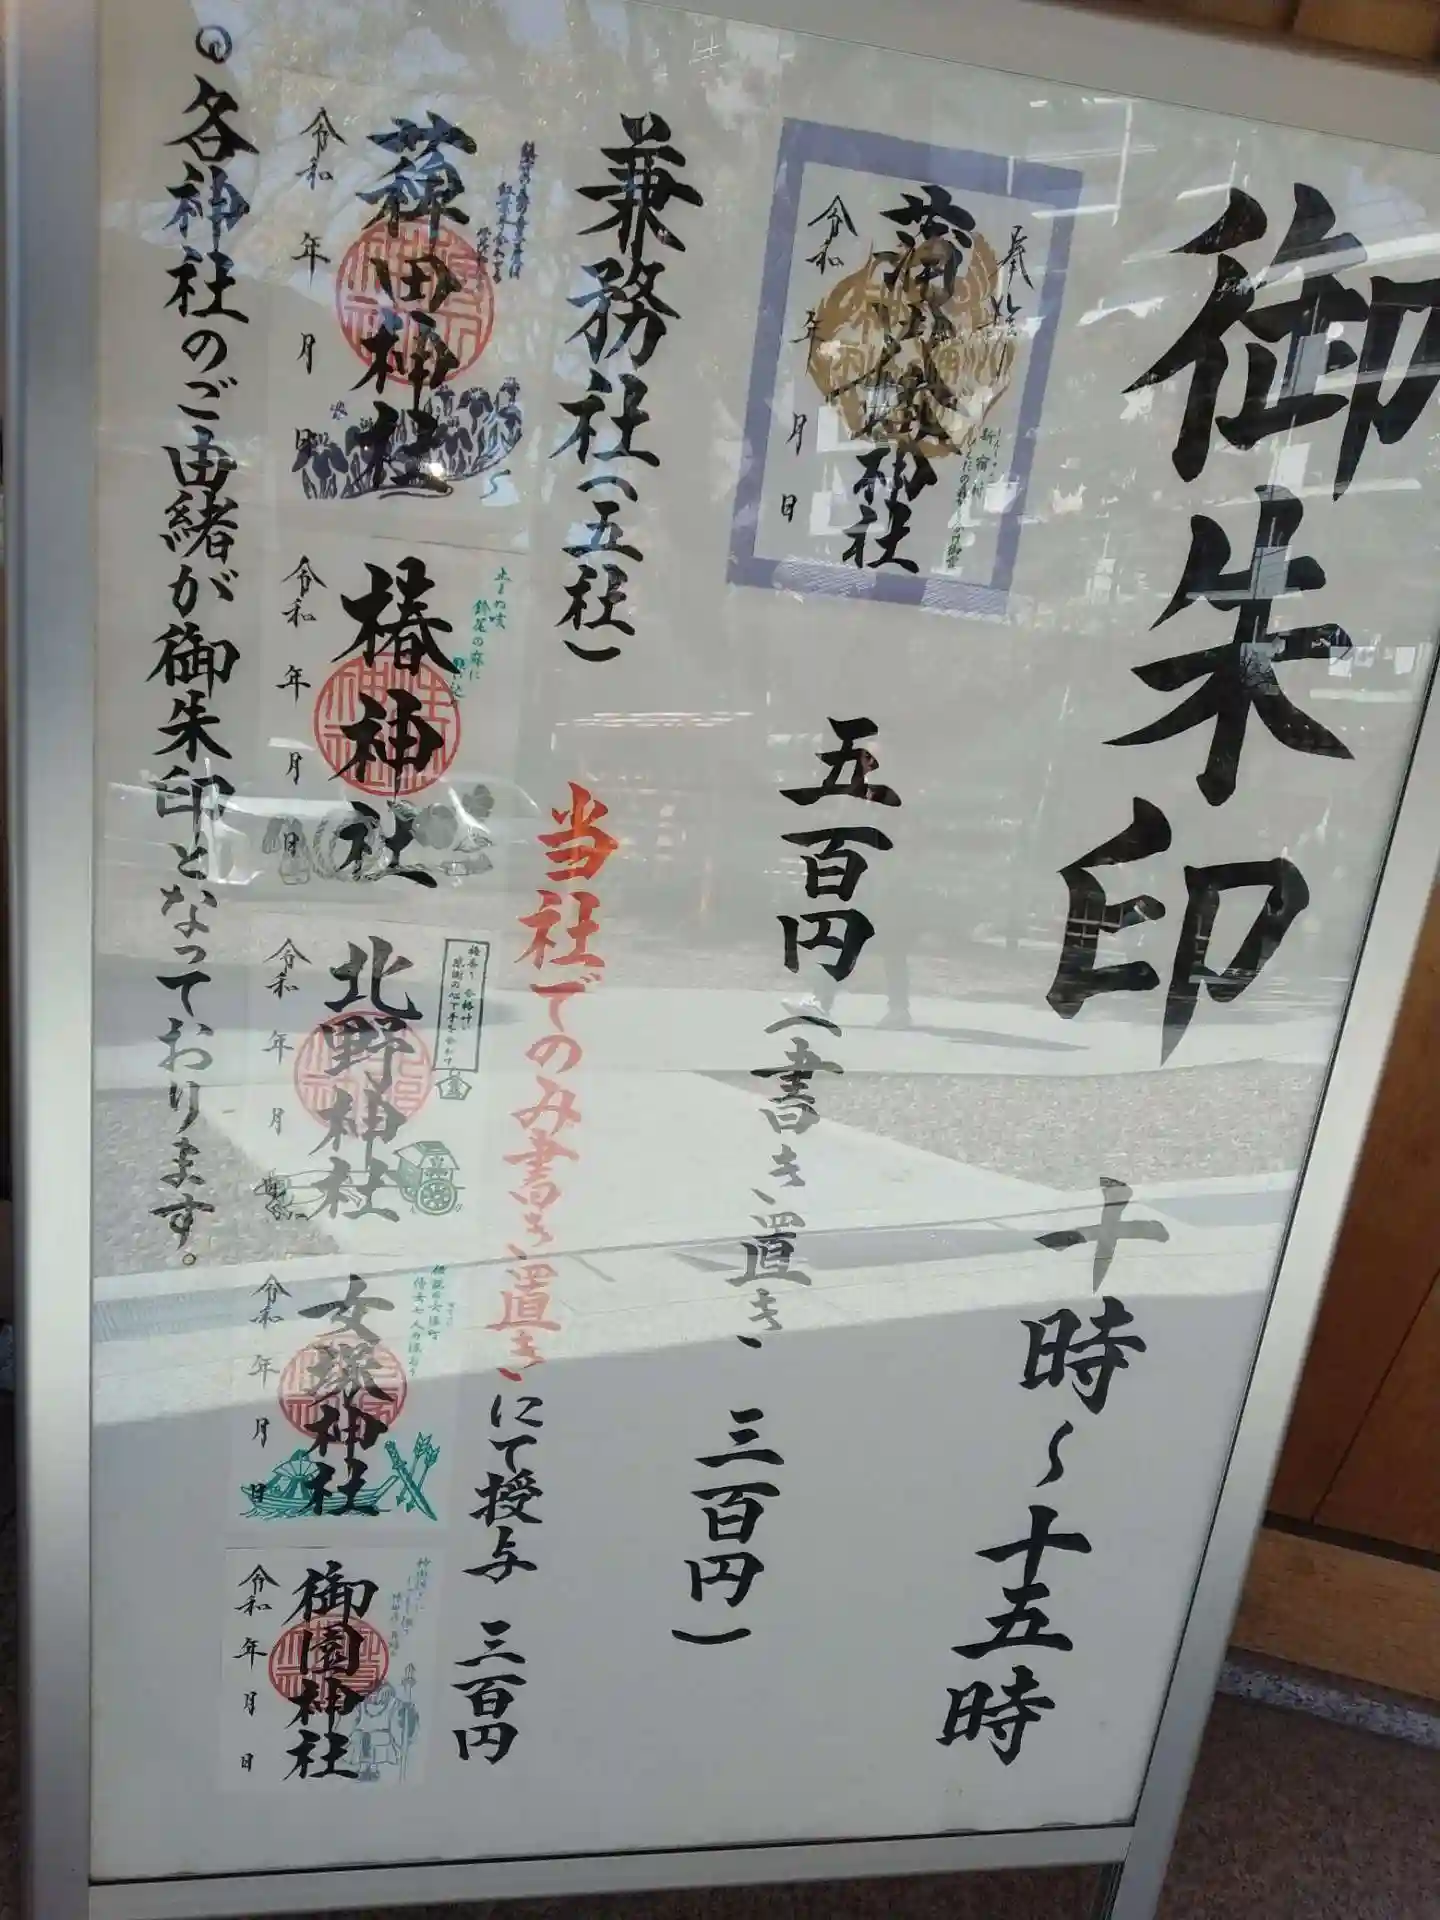 御朱印 十時〜十五時
奉拝
蒲田八幡神社
令和 年 月 日
五百円（書き置き 三百円）
兼務社（五社）
当社でのみ書き置きにて授与 三百円
薭田神社
令和 年 月 日
止まぬ咳
鈴尾の麻に
椿神社
令和 年 月 日
北野神社
令和 年 月 日
女塚神社
令和 年 月 日
御園神社
令和 年 月 日
各神社のご由緒が御朱印となっております。